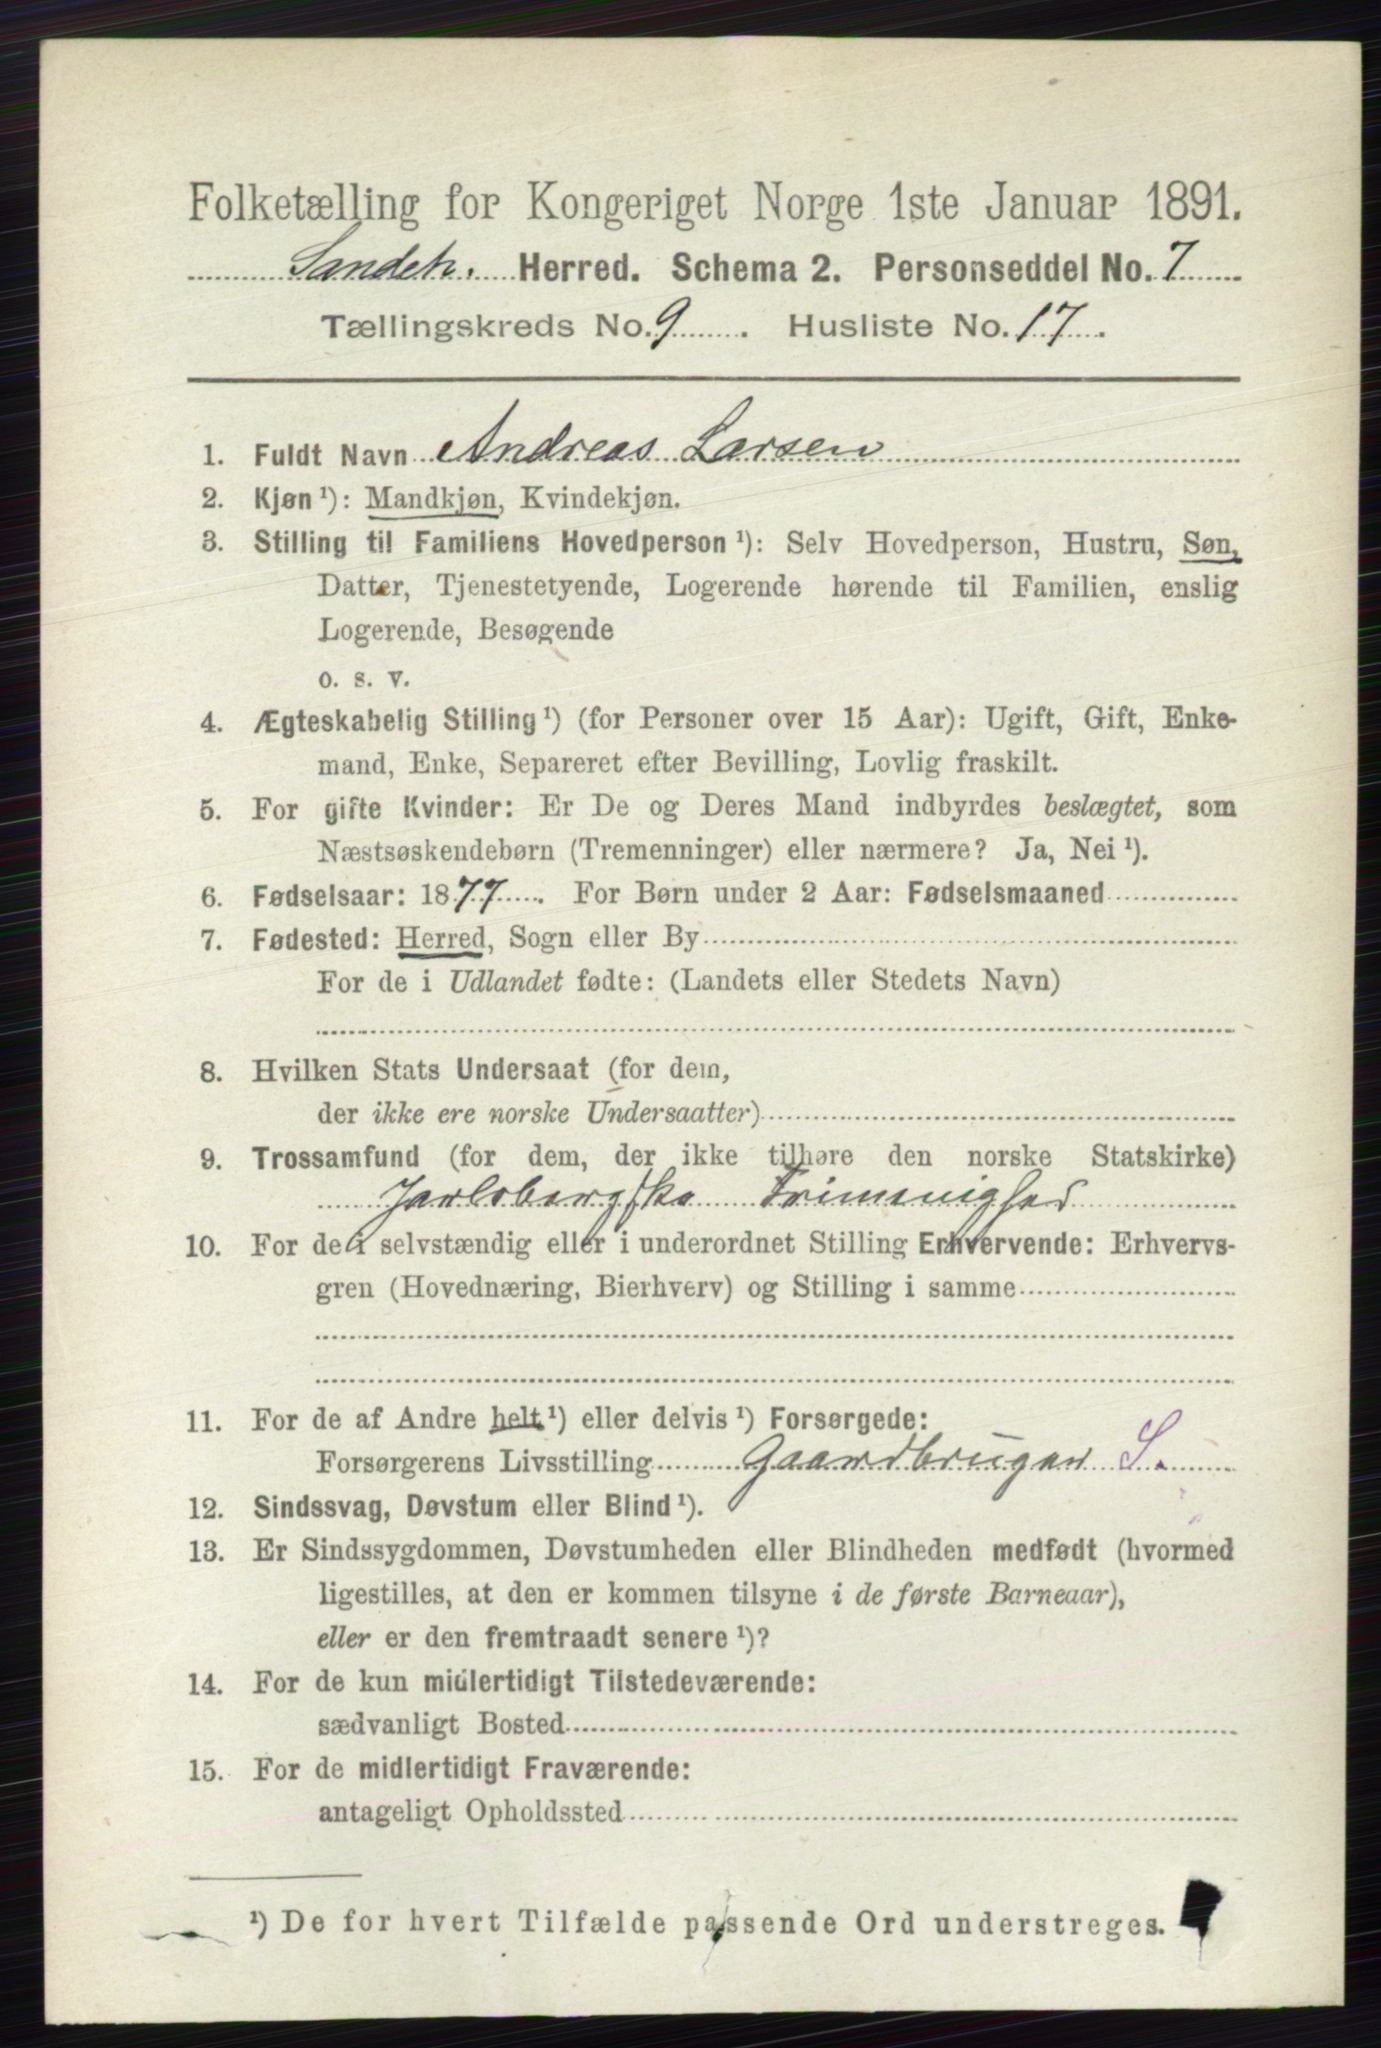 Folketælling for Kongeriget Norge 1ste Januar 1891.
Sandeh. Herred. Schema 2. Personseddel No. 7
Tællingskreds No. 9. Husliste No. 17.
1. Fuldt Navn Andreas Larsen
2. Kjøn ¹): Mandkjøn, Kvindekjøn.
3. Stilling til Familiens Hovedperson ¹): Selv Hovedperson, Hustru, Søn,
Datter, Tjenestetyende, Logerende hørende til Familien, enslig
Logerende, Besøgende
o. s. v.
4. Ægteskabelig Stilling ¹) (for Personer over 15 Aar): Ugift, Gift, Enke-
mand, Enke, Separeret efter Bevilling, Lovlig fraskilt.
5. For gifte Kvinder: Er De og Deres Mand indbyrdes beslægtet, som
Næstsøskendebørn (Tremenninger) eller nærmere? Ja, Nei ¹).
6. Fødselsaar: 1877. For Børn under 2 Aar: Fødselsmaaned
7. Fødested: Herred, Sogn eller By
For de i Udlandet fødte: (Landets eller Stedets Navn)
8. Hvilken Stats Undersaat (for dem,
der ikke ere norske Undersaatter)
9. Trossamfund (for dem, der ikke tilhøre den norske Statskirke)
Jarlsbergske Frimenighed
10. For de i selvstændig eller i underordnet Stilling Erhvervende: Erhvervs-
gren (Hovednæring, Bierhverv) og Stilling i samme
11. For de af Andre helt ¹) eller delvis ¹) Forsørgede:
Forsørgerens Livsstilling Gaardbruger S.
12. Sindssvag, Døvstum eller Blind ¹).
13. Er Sindssygdommen, Døvstumheden eller Blindheden medfødt (hvormed
ligestilles, at den er kommen tilsyne i de første Barneaar),
eller er den fremtraadt senere ¹)?
14. For de kun midlertidigt Tilstedeværende:
sædvanligt Bosted
15. For de midlertidigt Fraværende:
antageligt Opholdssted
¹) De for hvert Tilfælde passende Ord understreges.